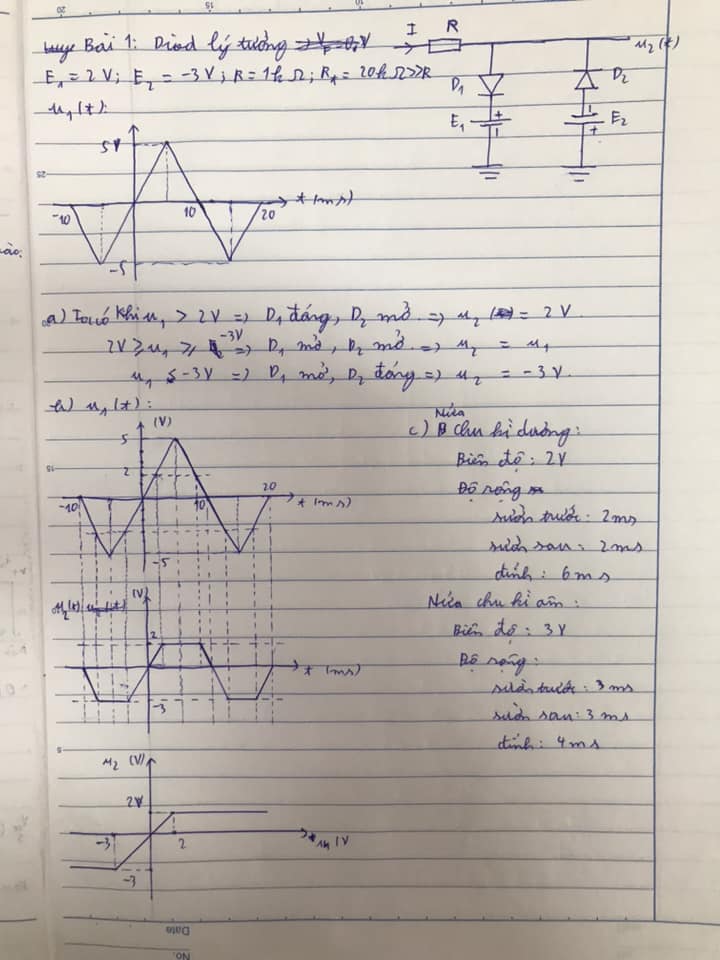 Bài 1: Diod lý tưởng
E₁ = 2 V; E₂ = -3 V; R = 1k Ω; R₁ = 20k Ω >> R
u₁(t):
I R u₂(t)
D₁ D₂
E₁ + E₂ +
5V
-10 10 20 t (ms)
-5
a) Khi u₁ > 2V => D₁ đóng, D₂ mở. => u₂ = 2V.
2V ≥ u₁ ≥ -3V => D₁ mở, D₂ mở. => u₂ = u₁
u₁ ≤ -3V => D₁ mở, D₂ đóng => u₂ = -3V.
b) u₁(t):
(V)
5
2
-10 10 20 t (ms)
-5
u₂(t) (V)
2
t (ms)
-3
u₂ (V)
2V
-3 2
-3
c) Nửa chu kì dương:
Biên độ: 2V
Độ rộng
sườn trước: 2ms
sườn sau: 2ms
đỉnh: 6ms
Nửa chu kì âm:
Biên độ: 3V
Độ rộng:
sườn trước: 3ms
sườn sau: 3ms
đỉnh: 4ms
Date
No.